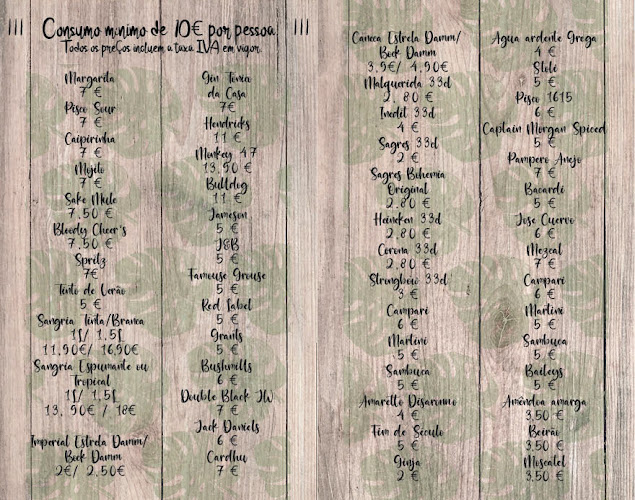 Consumo mínimo de 10€ por pessoa
Todos os preços incluem a taxa IVA em vigor.
Margarita
7 €
Pisco Sour
7 €
Caipirinha
7 €
Mojito
7 €
Sake Mule
7,50 €
Bloody Cheer's
7,50 €
Spritz
7€
Tinto de Verão
5 €
Sangria Tinta/Branca
1L/ 1.5L
11,90€/ 16,90€
Sangria Espumante ou
Tropical
1L/ 1.5L
13, 90€ / 18€
Imperial Estrela Damm/
Bock Damm
2€/ 2,50€
Gin Tonica
da Casa
7€
Hendricks
11 €
Monkey 47
13,50 €
Bulldog
11 €
Jameson
5 €
J&B
5 €
Famouse Grouse
5 €
Red Label
5 €
Grants
5 €
Bushmills
6 €
Double Black JW
7 €
Jack Daniels
6 €
Cardhu
7 €
Caneca Estrela Damm/
Bock Damm
3,9€/ 4,90€
Malquerida 33cl
2, 80 €
Inedit 33cl
4 €
Sagres 33cl
2 €
Sagres Bohemia
Original
2,80 €
Heineken 33cl
2,80 €
Corona 33cl
2,80 €
Strongbow 33cl
3 €
Campari
6 €
Martini
5 €
Sambuca
5 €
Amaretto Disaronno
4 €
Fim de Século
5 €
Ginja
2 €
Agua ardente Grega
4 €
Stoli
5 €
Pisco 1615
6 €
Captain Morgan Spiced
5 €
Pampero Anejo
7 €
Bacardi
5 €
Jose Cuervo
6 €
Mezcal
7 €
Campari
6 €
Martini
5 €
Sambuca
5 €
Baileys
5 €
Amêndoa amarga
3,50 €
Beirão
3,50 €
Moscatel
3,50 €